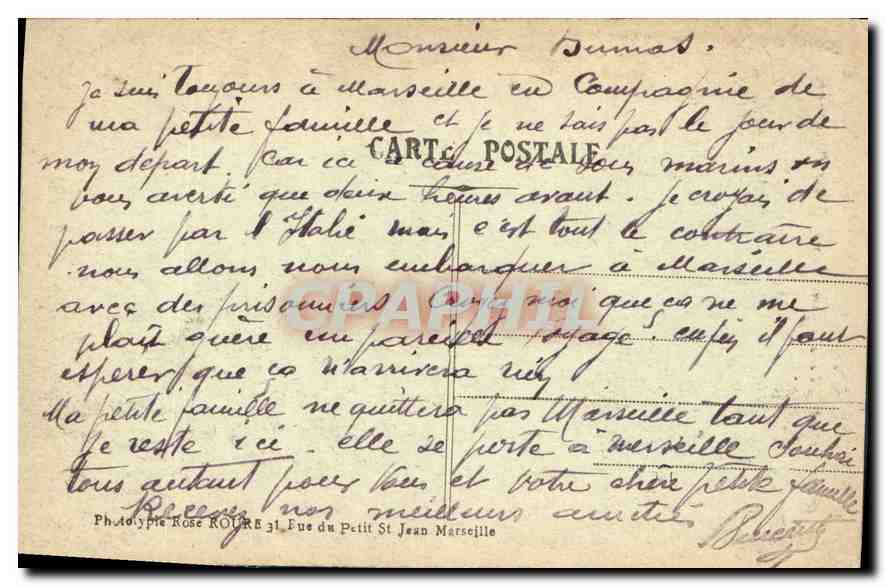 Monsieur Dumas.
Je suis toujours à Marseille en Compagnie de
ma petite famille et je ne sais pas le jour de
CARTE POSTALE
mon départ. Car ici à cause de sous marins on
vous averti que deux heures avant. Je croyais de
passer par l'Italie mais c'est tout le contraire
nous allons nous embarquer à Marseille
CPAPHIL
avec des prisonniers. Croyez moi que ça ne me
plait guère un pareil voyage. enfin il faut
esperer que ça n'arrivera rien
Ma petite famille ne quittera pas Marseille tant que
je reste ici. elle se porte à merveille Souhai
tous autant pour Vous et votre chère petite famille
Recevez nos meilleurs amitiés
Phototypie Rose ROURE 31, Rue du Petit St Jean Marseille